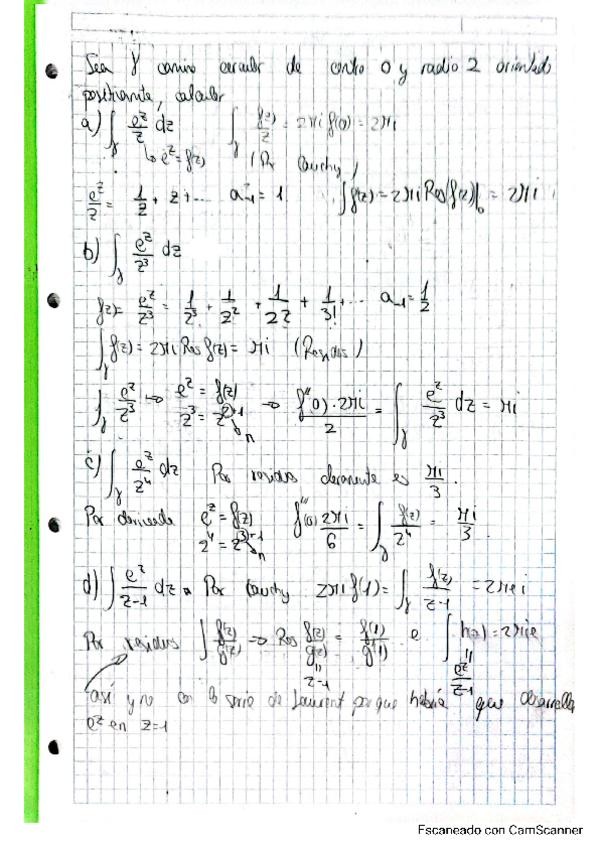 Sea γ camino circular de centro 0 y radio 2 orientado
positivamente, calcular
a) ∫γ e^z/z dz ∫γ f(z)/z = 2πi f(0) = 2πi
↳ e^z = f(z) (Por Cauchy)
e^z/z = 1/z + z + ... a₋₁ = 1 ∫f(z) = 2πi Res(f(z))|₀ = 2πi
b) ∫γ e^z/z³ dz
f(z) = e^z/z³ = 1/z³ + 1/z² + 1/2z + 1/3! + ... a₋₁ = 1/2
∫γ f(z) = 2πi Res f(z) = πi (Residuos)
∫γ e^z/z³ ⇒ e^z = f(z) ⇒ f''(0)·2πi/2 = ∫γ e^z/z³ dz = πi
z³ = z^(2+1) → n
c) ∫γ e^z/z⁴ dz Por residuos claramente es πi/3.
Por derivada e^z = f(z) f'''(0) 2πi/6 = ∫γ f(z)/z⁴ = πi/3.
z⁴ = z^(3+1) → n
d) ∫ e^z/z-1 dz Por Cauchy 2πi f(1) = ∫γ f(z)/z-1 = 2πei
Por residuos ∫γ f(z)/g(z) ⇒ Res f(z)/g(z) = f(1)/g'(1) = e ∫γ h(z) = 2πie
z-1 e^z/z-1
así y no con la serie de Laurent porque habría que desarrollar
e^z en z=1
Escaneado con CamScanner